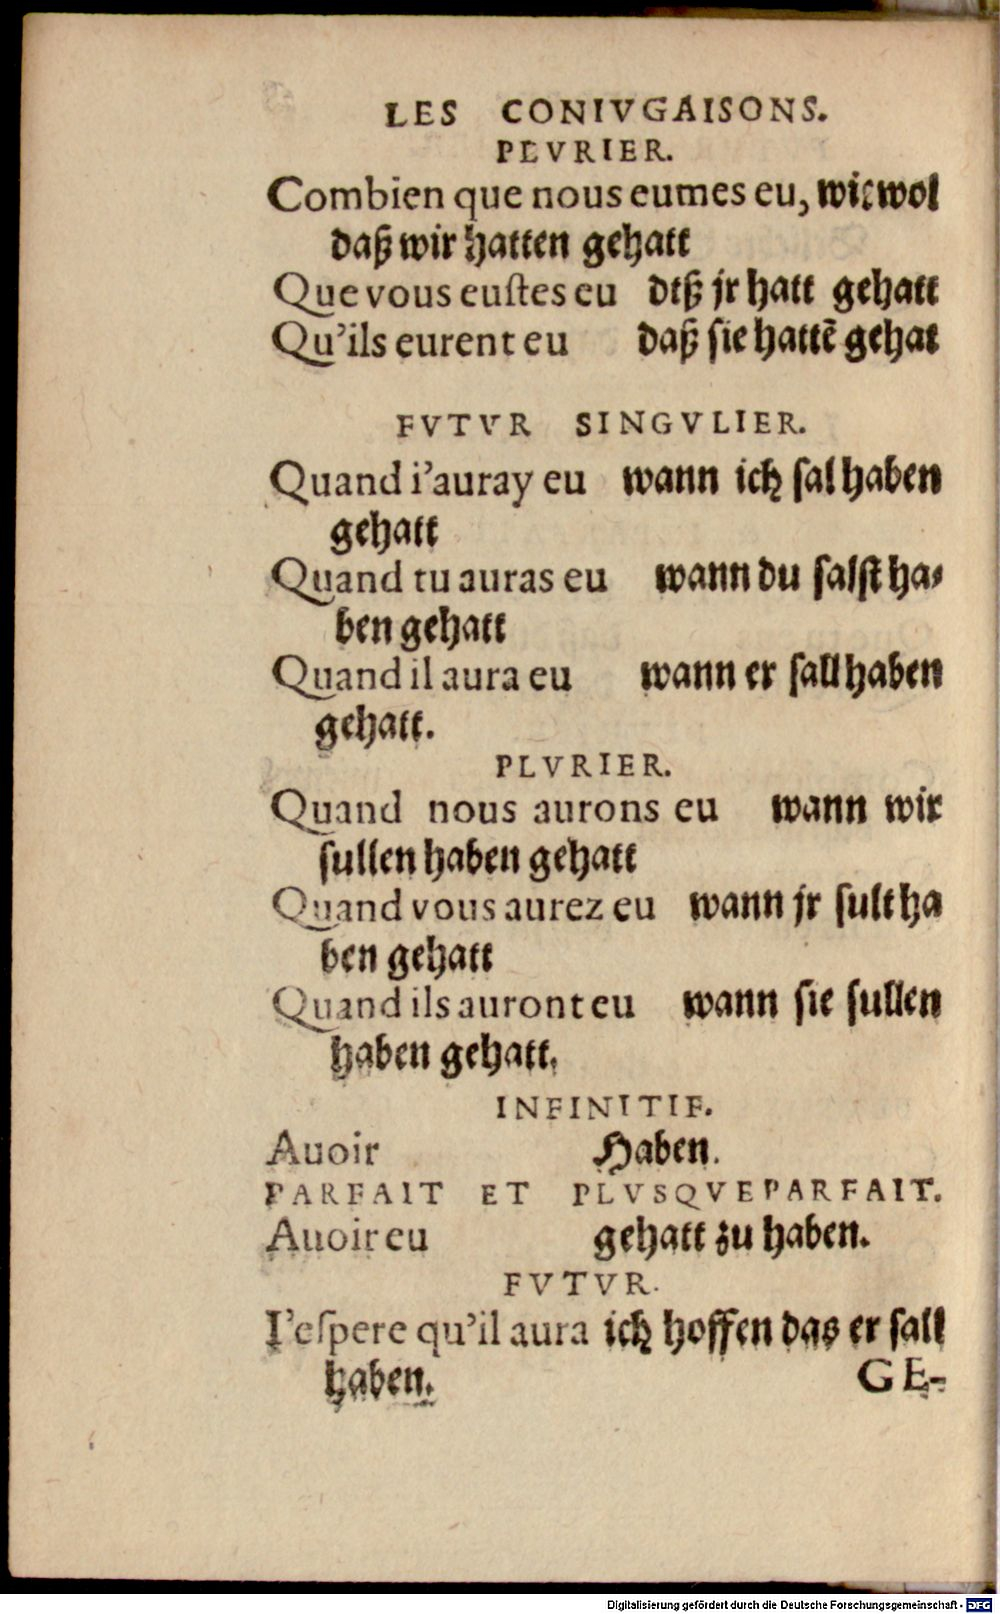 LES CONIVGAISONS.
PLVRIER.
Combien que nous eumes eu, wiewol
daß wir hatten gehatt
Que vous eustes eu dtß jr hatt gehatt
Qu'ils eurent eu daß sie hattē gehat
FVTVR SINGVLIER.
Quand i'auray eu wann ich sal haben
gehatt
Quand tu auras eu wann du salst ha-
ben gehatt
Quand il aura eu wann er sall haben
gehatt.
PLVRIER.
Quand nous aurons eu wann wir
sullen haben gehatt
Quand vous aurez eu wann jr sult ha
ben gehatt
Quand ils auront eu wann sie sullen
haben gehatt.
INFINITIF.
Auoir Haben.
PARFAIT ET PLVSQVEPARFAIT.
Auoir eu gehatt zu haben.
FVTVR.
I'espere qu'il aura ich hoffen das er sall
haben.
GE-
Digitalisierung gefördert durch die Deutsche Forschungsgemeinschaft - DFG